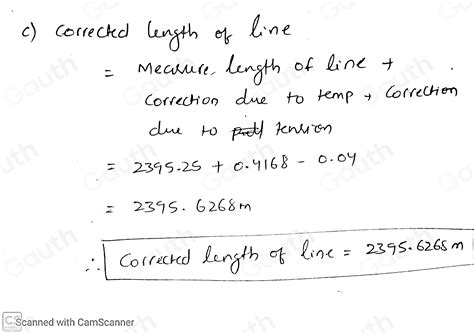 c) Corrected length of line
= Measure length of line +
Correction due to temp + Correction
due to pull tension
= 2395.25 + 0.4168 - 0.04
= 2395.6268m
∴ Corrected length of line = 2395.6268 m
CS Scanned with CamScanner
Gauth